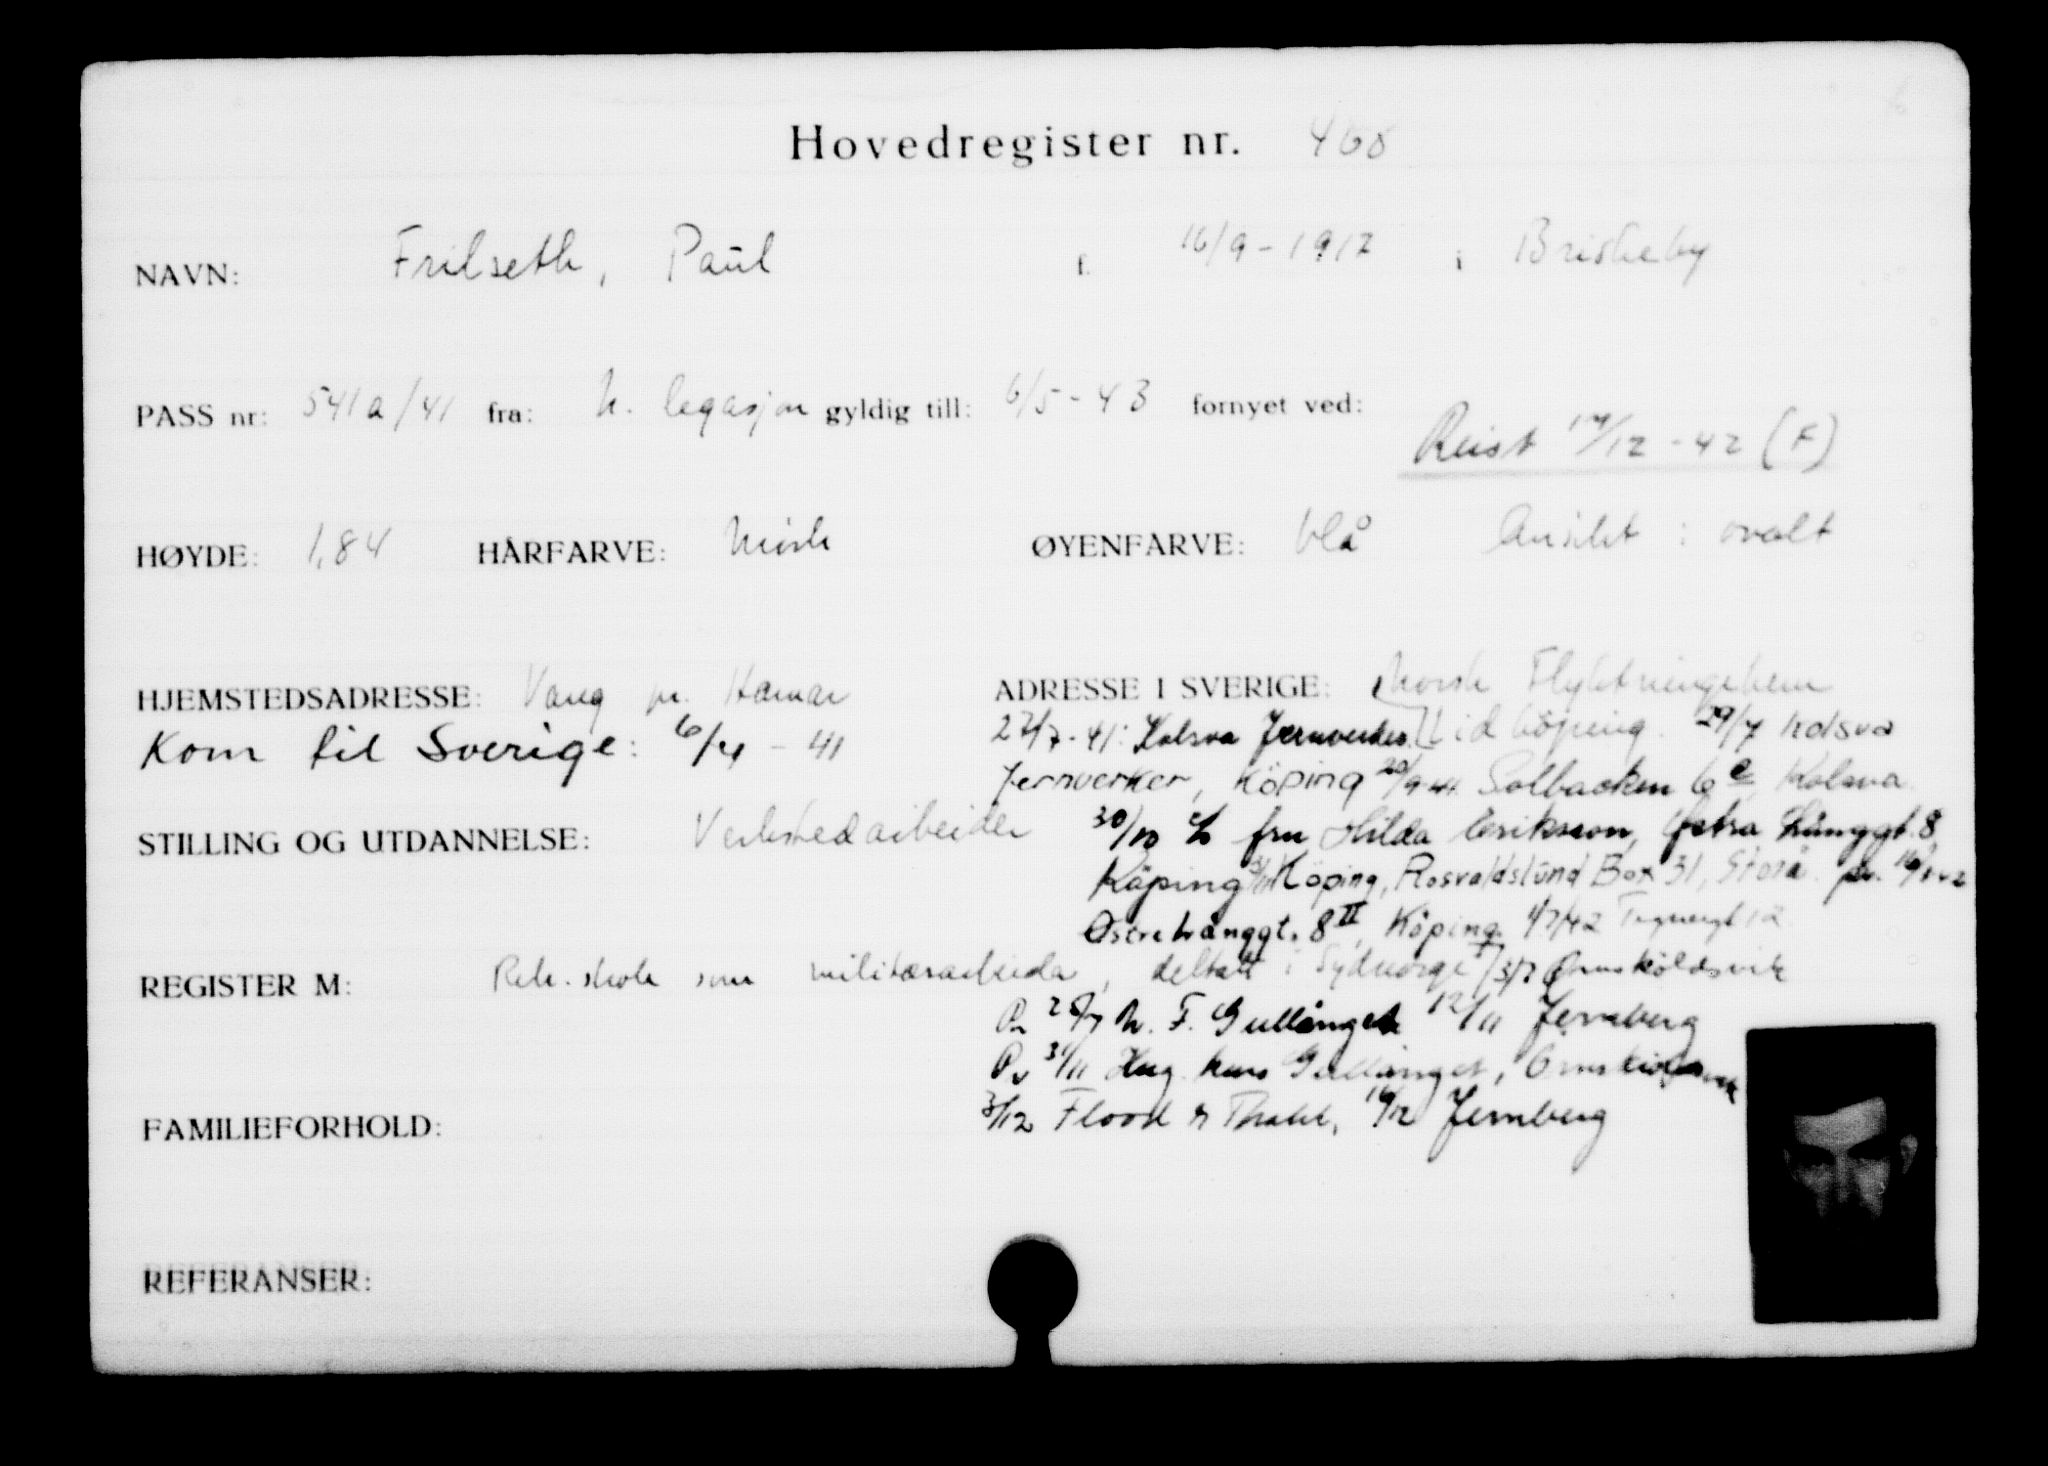 Hovedregister nr. 468
NAVN: Frilseth, Paul f. 16/9 - 1917 i Briskeby
PASS nr: 541a/41 fra: N. legasjon gyldig till: 6/5 - 43 fornyet ved:
Reist 17/12 - 42 (F)
HØYDE: 1,84 HÅRFARVE: Mørk ØYENFARVE: blå Ansikt: ovalt
HJEMSTEDSADRESSE: Vang pr. Hamar
Kom til Sverige: 6/4 - 41
ADRESSE I SVERIGE: Norsk Flyktningehem
27/7 - 41: Kolsva Jernverker Köping. 29/7 Kolsva
Jernverker, Köping 20/9 41 Solbacken 6 e Kolsva
STILLING OG UTDANNELSE: Verkstedarbeider
30/10 c/o fru Hilda Eriksson, Östra Långgt. 8
Köping Köping, Rosvaldslund Box 31, Storå pr.
Østre Långgt. 8 II, Köping. 1/7/42
REGISTER M: Rekr. skole som militærarbeider, deltatt i Sydnorge
3/7 Ørnsköldsvik
N. F. Gullänget 12/11 Jernberg
Pr 3/11 Gullänget, Örnsköldsvik
3/12 Flood 14/12 Jernberg
FAMILIEFORHOLD:
REFERANSER: